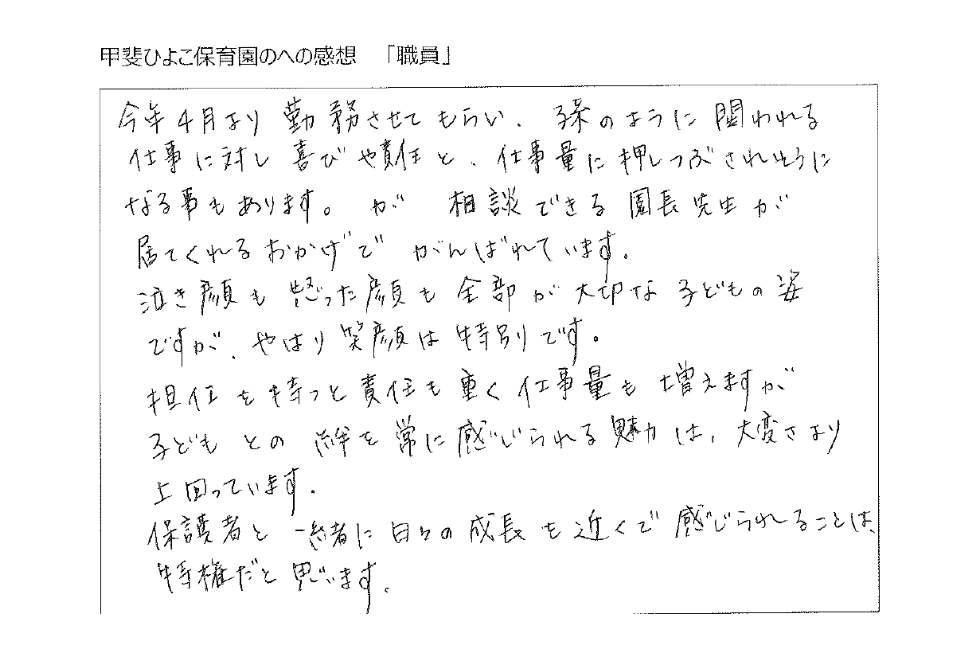 甲斐ひよこ保育園のへの感想　「職員」
今年4月より 勤務させてもらい、孫のように関われる
仕事に対し 喜びや責任と、仕事量に押しつぶされそうに
なる事もあります。が 相談できる園長先生が
居てくれるおかげで がんばれています。
泣き顔も 怒った顔も 全部が大切な子どもの姿
ですが、やはり笑顔は特別です。
担任を持つと責任も重く仕事量も 増えますが
子どもとの 絆を常に感じられる魅力は、大変さより
上回っています。
保護者と 一緒に日々の成長を近くで感じられることは、
特権だと思います。